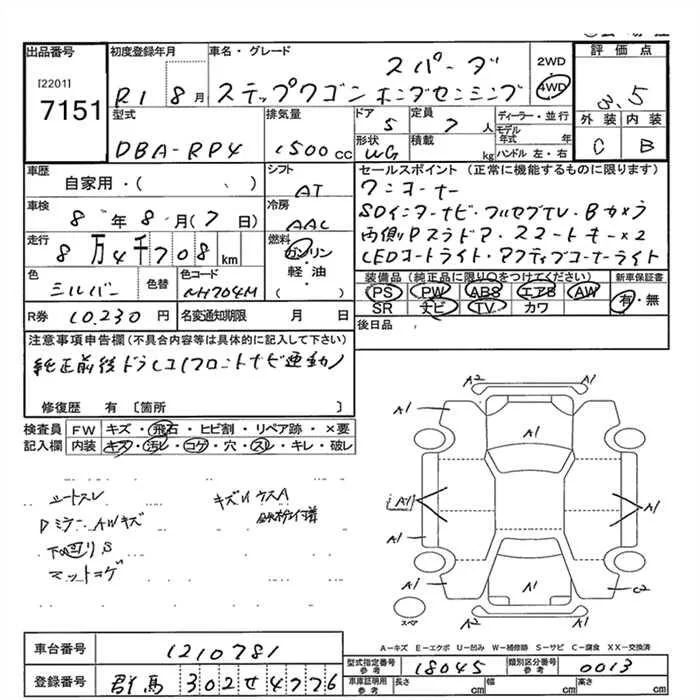 出品番号
[2201]
7151
初度登録年月
R1 8月
車名・グレード
スパーダ
ステップワゴン ホンダセンシング
2WD
4WD
評価点
3.5
外装 内装
C B
型式
DBA-RP4
排気量
1500cc
ドア
5
定員
7人
形状
WG
積載
kg
ディーラー・並行
モデル年式 年
ハンドル 左・右
車歴
自家用・( 、 )
シフト
AT
車検
8年8月(7日)
冷房
AAC
走行
8万4千708km
燃料
ガソリン
軽・油
( )
色
シルバー
色替
色コード
NH704M
R券 10,230円
名変通知期限 月 日
セールスポイント (正常に機能するものに限ります)
ワンオーナー
SDインターナビ・フルセグTV・Bカメラ
両側Pスラドア・スマートキー×2
LEDコートライト・アクティブコーナーライト
装備品(純正品に限り○をつけてください)
PS PW ABS エアB AW
SR ナビ TV カワ
新車保証書
有・無
後日品
注意事項申告欄(不具合内容等は具体的に記入して下さい)
純正前後ドラレコ(フロントナビ連動)
修復歴 有 〔箇所 〕
検査員
記入欄
FW キズ・飛石・ヒビ割・リペア跡・×要
内装 キズ・汚レ・コゲ・穴・スレ・キレ・破レ
シートスレ
Dミラー、AWキズ
下回りS
マットコゲ
A2 A1
A1
A1
A1
A1
A1
A1
A1
A1
C2
A2 A1
スペア
A-キズ E-エクボ U-凹み W-補修跡 S-サビ C-腐食 XX-交換済
車台番号 1210781
登録番号 群馬 302せ4776
型式指定番号
参考
18045
類別区分番号
参考
0013
車庫証明用
参考
長さ cm
幅 cm
高さ cm